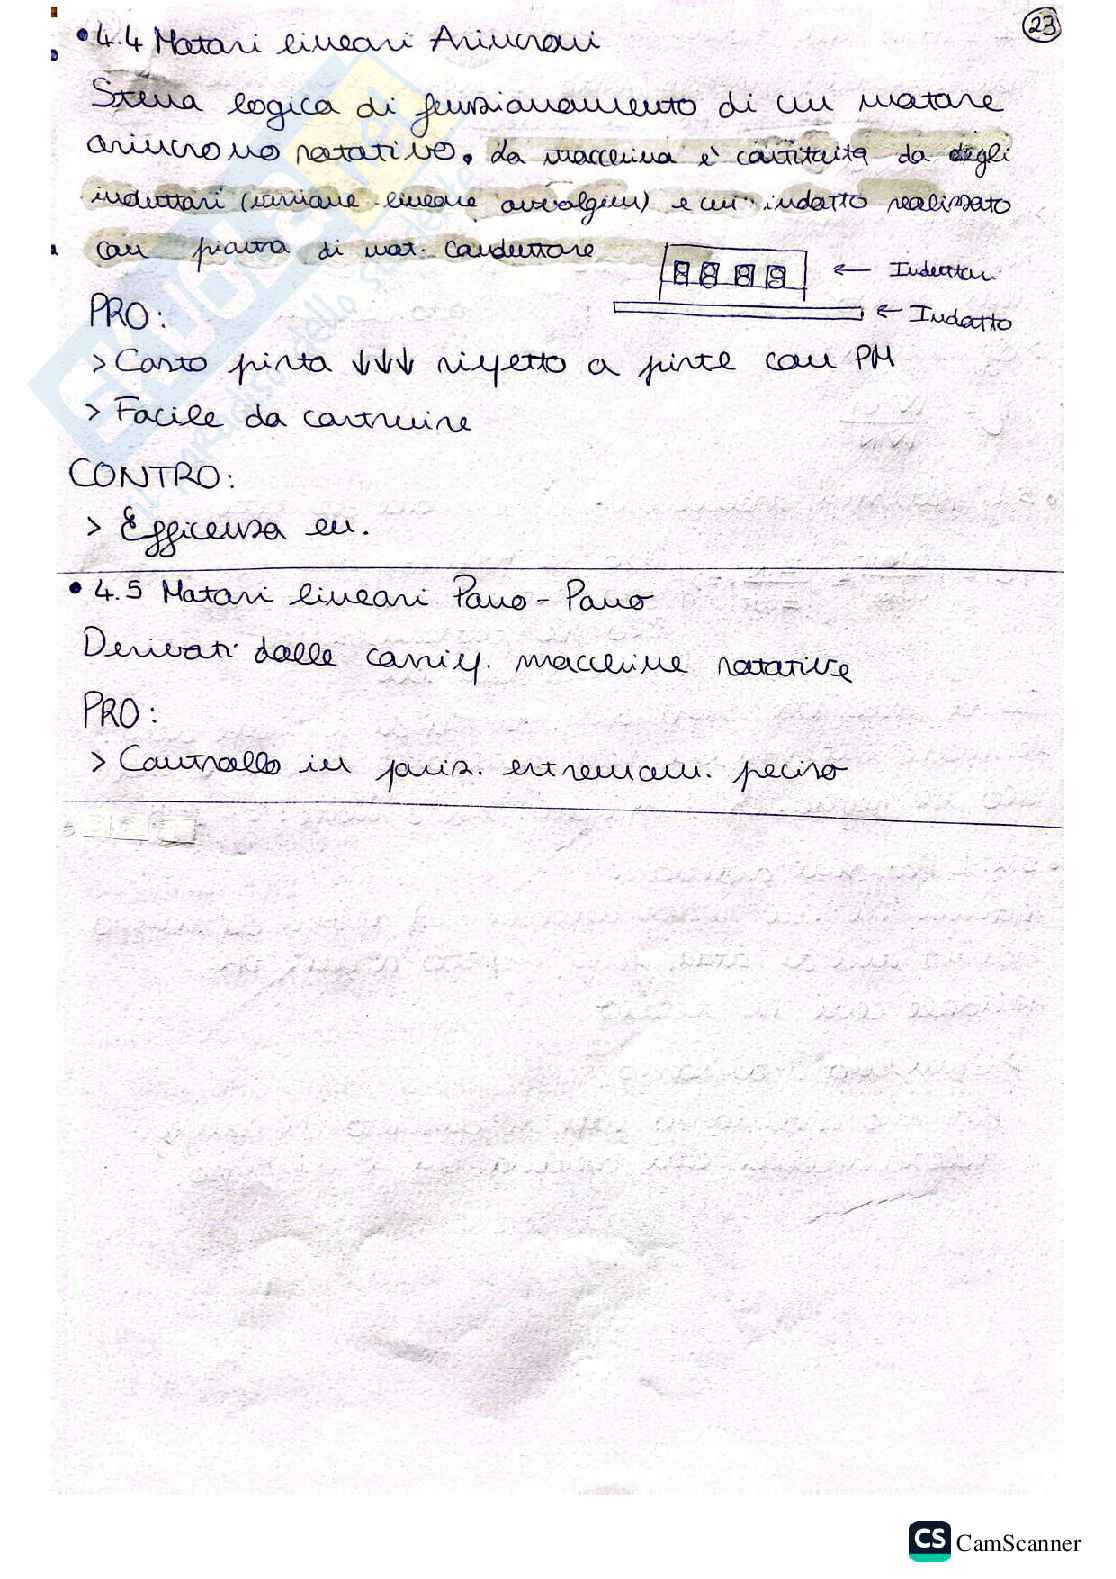 23
• 4.4 Motori lineari Asincroni
Stessa logica di funzionamento di un motore
asincrono rotativo. La macchina è costituita da degli
induttori (versione lineare avvolgim) e un indotto realizzato
con piastra di mat. conduttore
← Induttori
← Indotto
PRO:
> Costo pista ↓↓↓ rispetto a piste con PM
> Facile da costruire
CONTRO:
> Efficenza en.
• 4.5 Motori lineari Passo-Passo
Derivati dalle corrisp. macchine rotative
PRO:
> Controllo in posiz. estremam. peciso
CS CamScanner